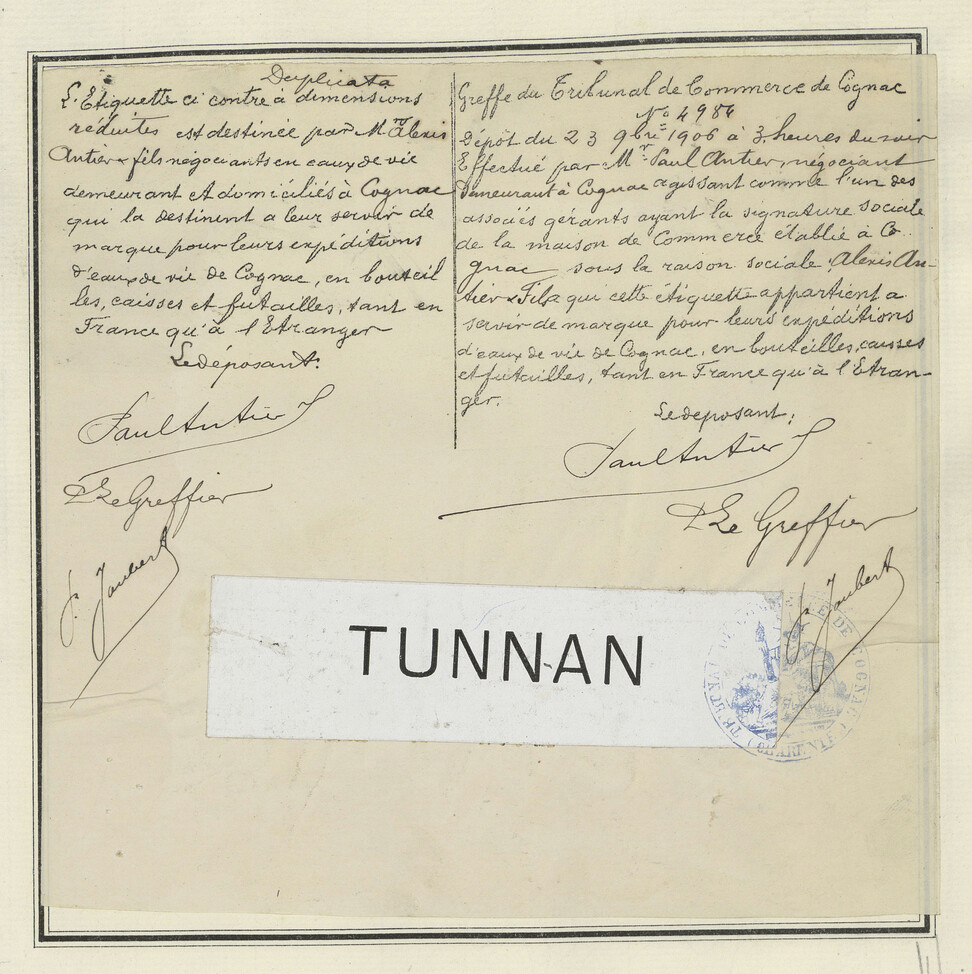 Duplicata
L'Etiquette ci contre à dimensions
réduites est destinée par Mrs Alexis
Antier & fils négociants en eaux de vie
demeurant et domiciliés à Cognac
qui la destinent a leur servir de
marque pour leurs expéditions
d'eaux de vie de Cognac, en bouteil
les, caisses et futailles, tant en
France qu'à l'Etranger
Le déposant:
Paul Antier
Le Greffier
J. Jaubert
Greffe du Tribunal de Commerce de Cognac
No 4984
Dépôt du 23 9bre 1906 à 3 heures du soir
Effectué par Mr Paul Antier, négociant
Demeurant à Cognac agissant comme l'un des
associés gérants ayant la signature sociale
de la maison de Commerce établie à Co
gnac sous la raison sociale, Alexis An-
tier & Fils qui cette étiquette appartient a
servir de marque pour leurs expéditions
d'eaux de vie de Cognac, en bouteilles, caisses
et futailles, tant en France qu'à l'Etran-
ger.
Le deposant:
Paul Antier
Le Greffier
J. Jaubert
TUNNAN
TRIBUNAL DE COMMERCE DE COGNAC
(CHARENTE)